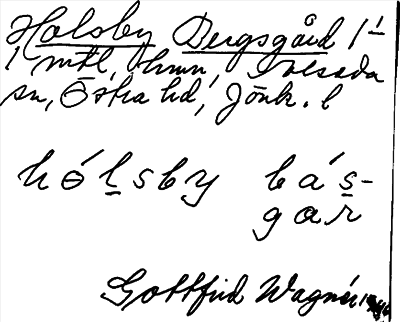 Holsby Bergsgård 1
1 mtl, hmn, Alseda
sn, Östra hd, Jönk. l
hóḻsby bás̱-
gar
Gottfrid Wagnér